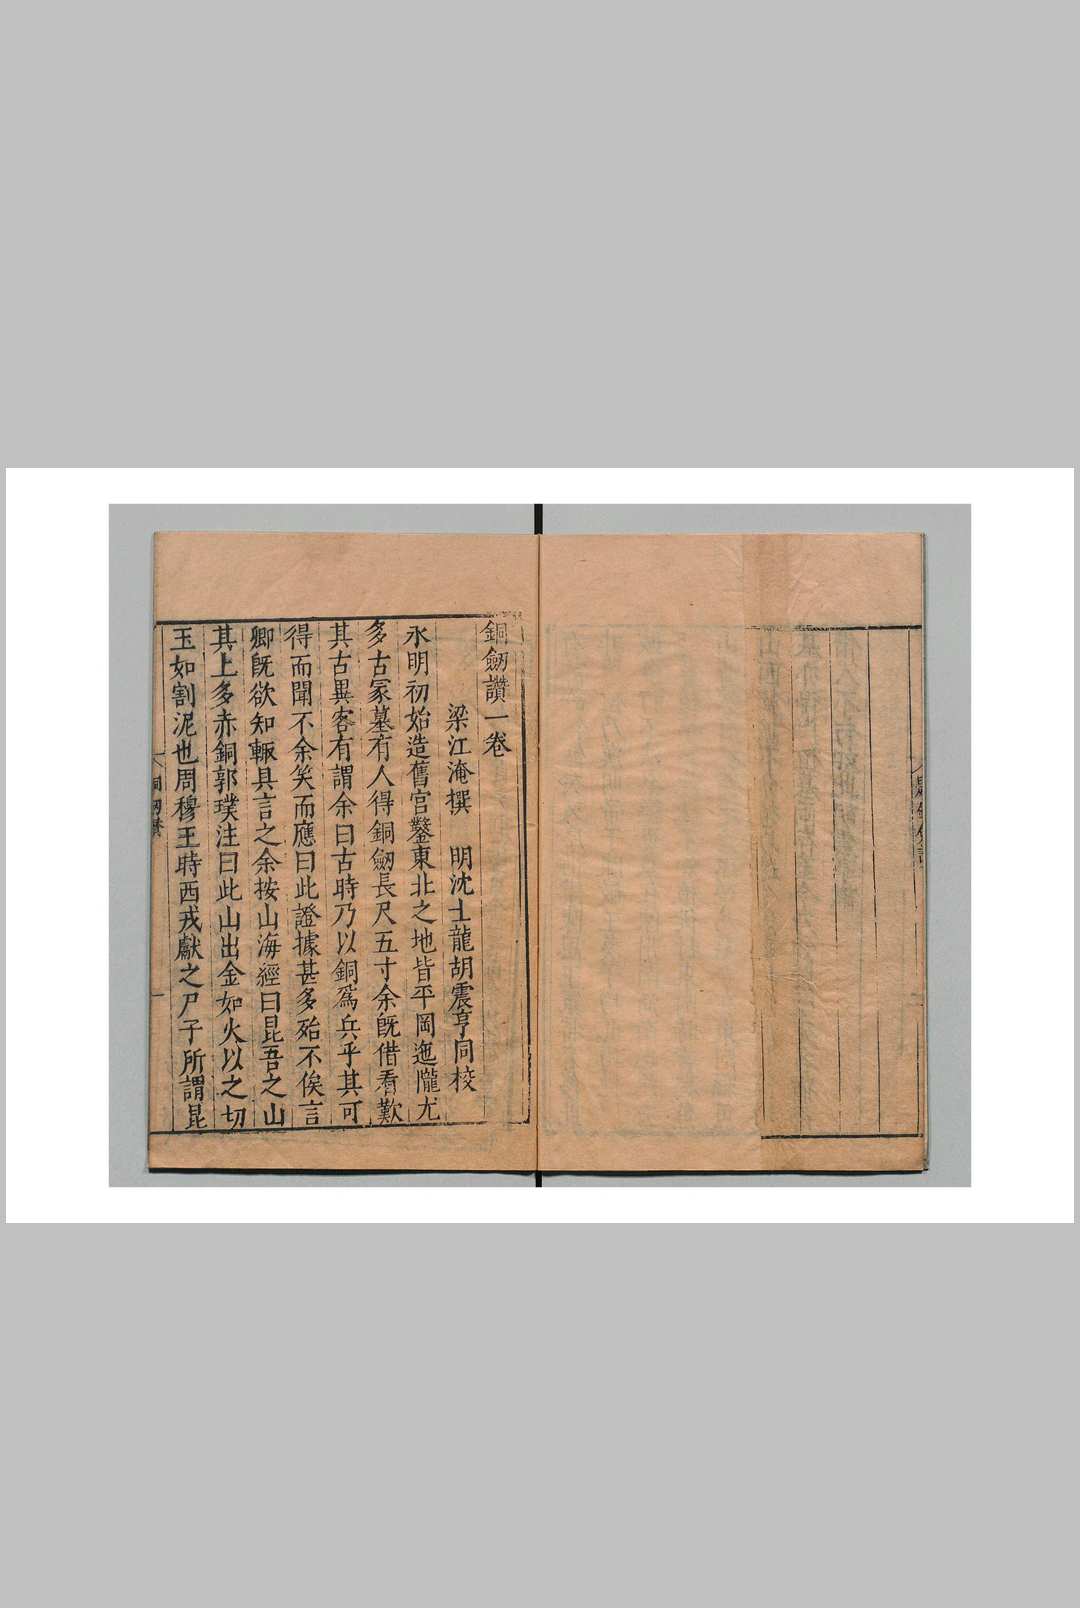 銅劒讚一卷
梁江淹撰　明沈士龍胡震亨同校
永明初始造舊宮鑿東北之地皆平岡迤隴尤
多古冢墓有人得銅劒長尺五寸余旣借看歎
其古異客有謂余曰古時乃以銅爲兵乎其可
得而聞不余笑而應曰此證據甚多殆不俟言
卿旣欲知輙具言之余按山海經曰昆吾之山
其上多赤銅郭璞注曰此山出金如火以之切
玉如割泥也周穆王時西戎獻之尸子所謂昆